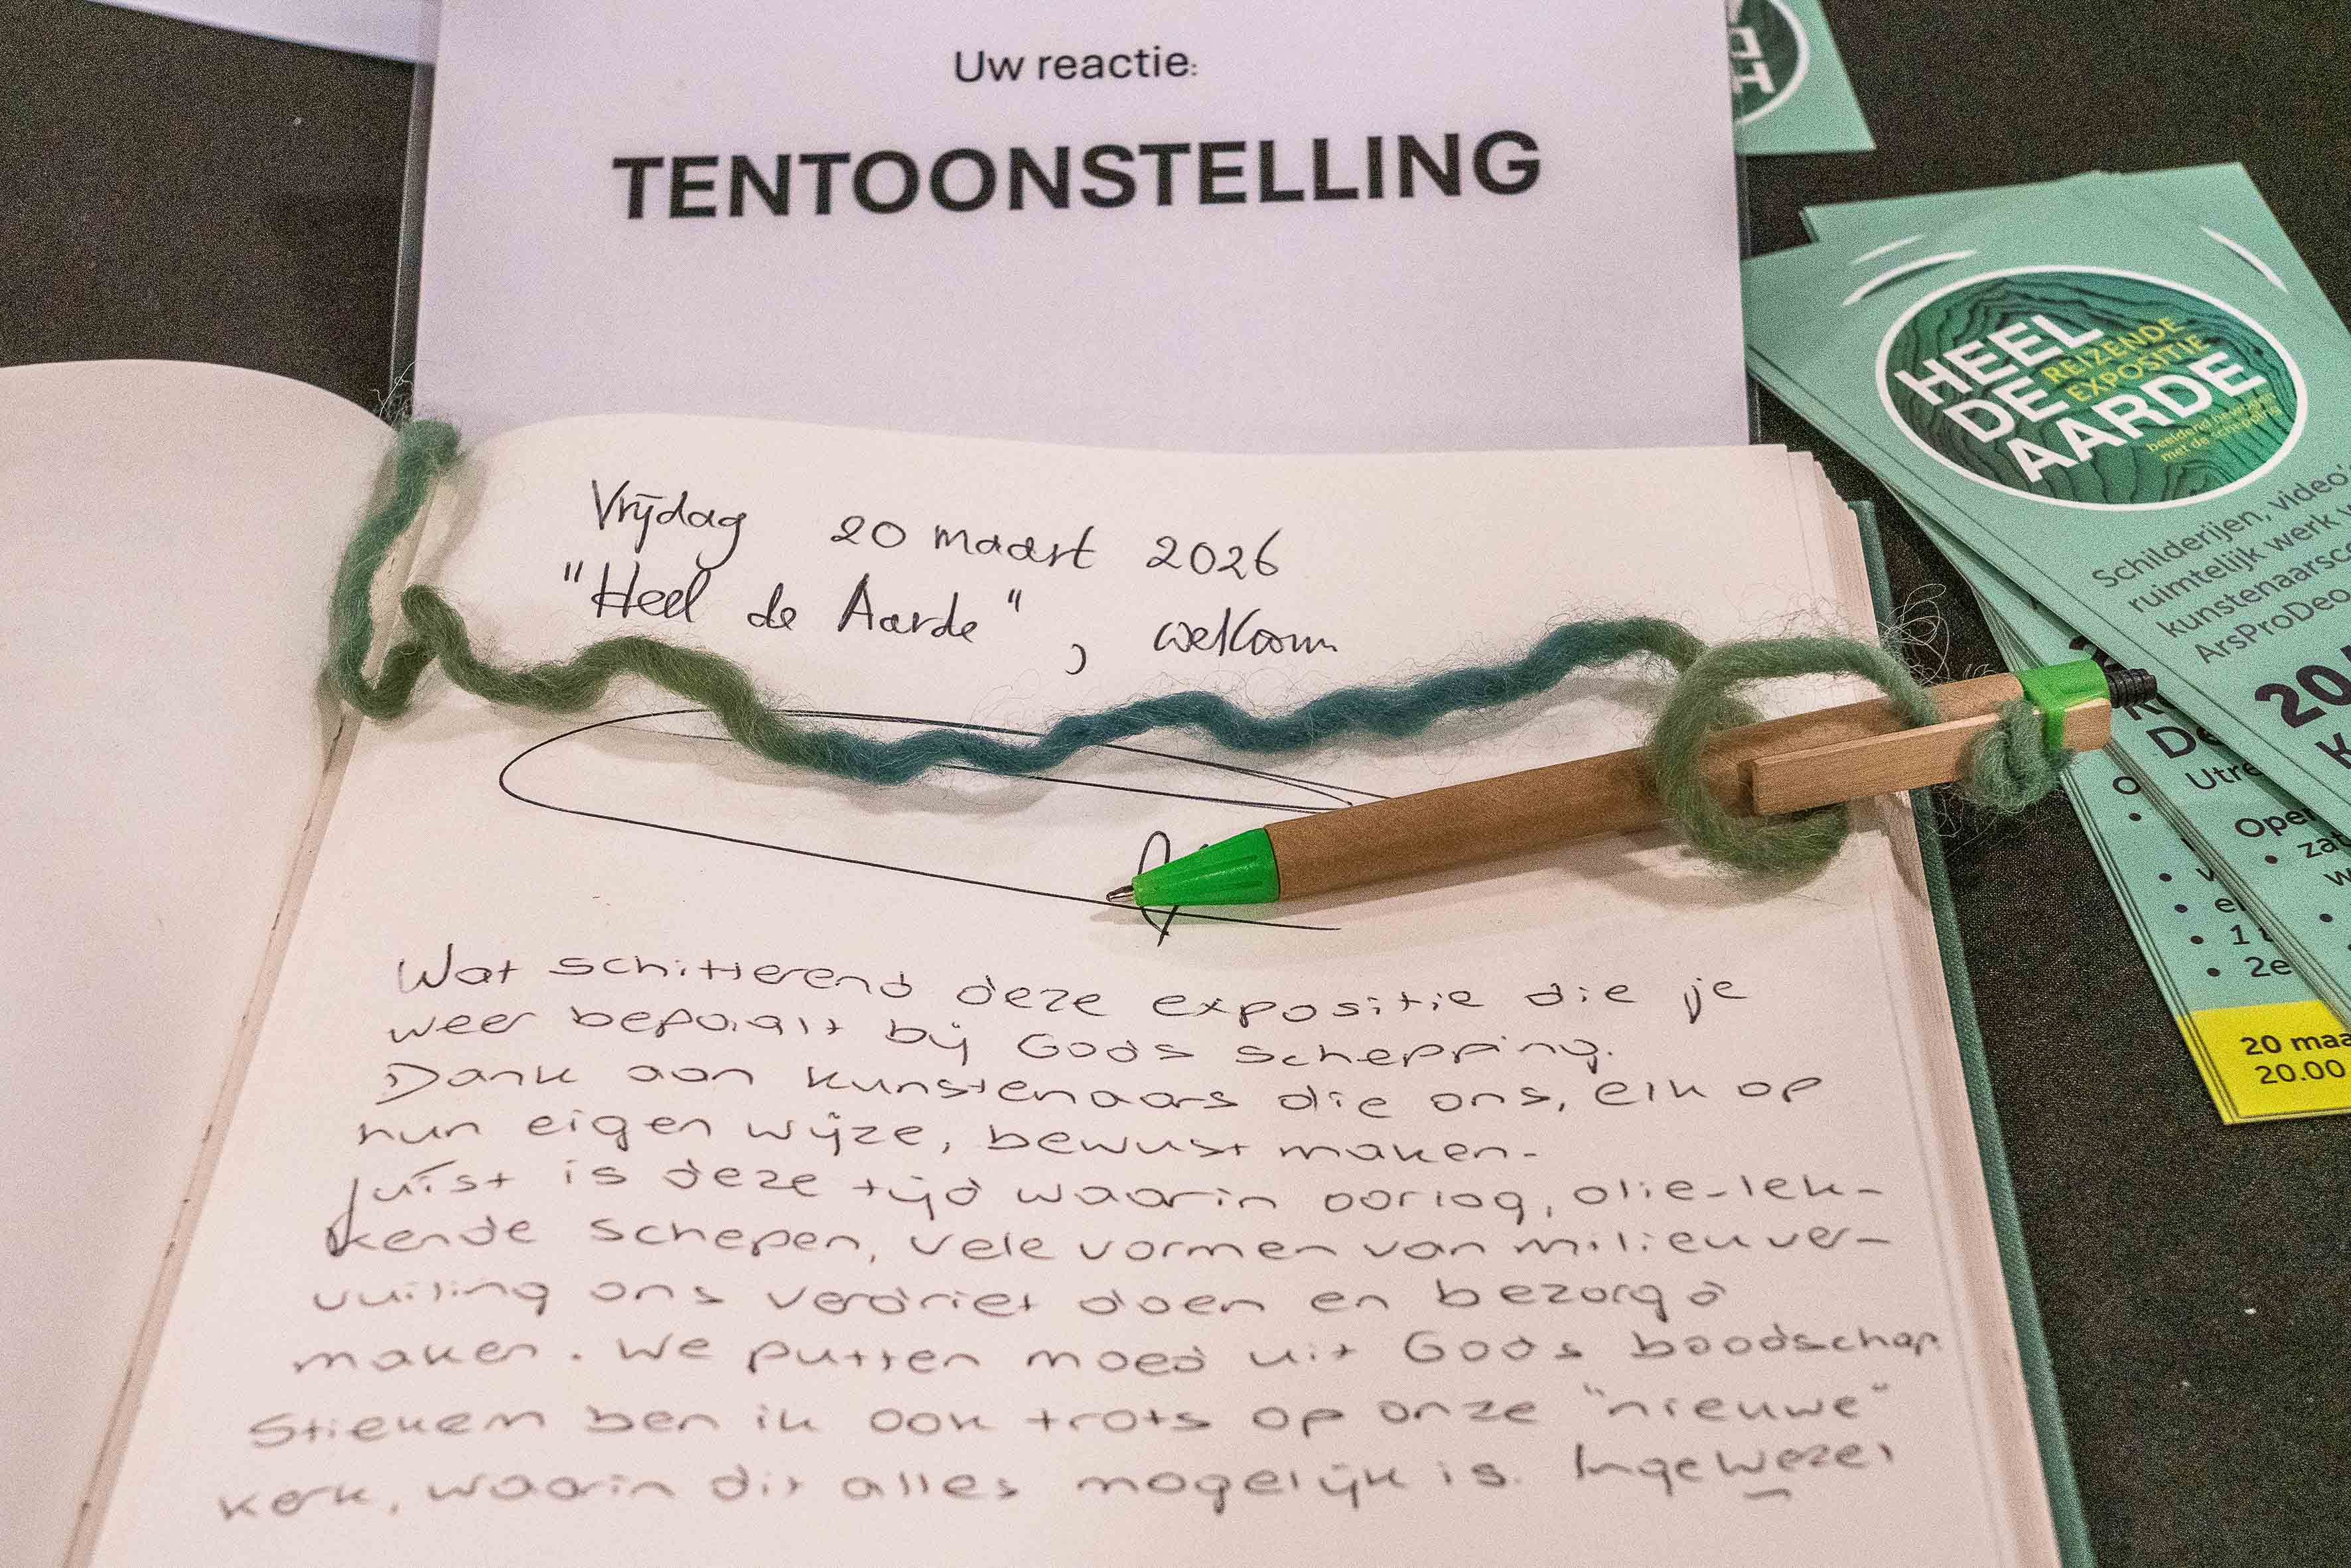 Uw reactie:
TENTOONSTELLING
Vrijdag 20 maart 2026
"Heel de Aarde", welkom
Wat schitterend deze expositie die je
weer bepaalt bij Gods schepping.
Dank aan kunstenaars die ons, elk op
hun eigen wijze, bewust maken.
Juist is deze tijd waarin oorlog, olie-lek-
kende schepen, vele vormen van milieuver-
vuiling ons verdriet doen en bezorgd
maken. We putten moed uit Gods boodschap
Stiekem ben ik ook trots op onze "nieuwe"
kerk, waarin dit alles mogelijk is.
HEEL
DE
AARDE
REIZENDE
EXPOSITIE
beeldend bewogen
met de schepping
Schilderijen, video'
ruimtelijk werk
kunstenaarsc
ArsProDeo
20
K
Utre
Open
• zat
w
• 1
2e
20 maa
20.00